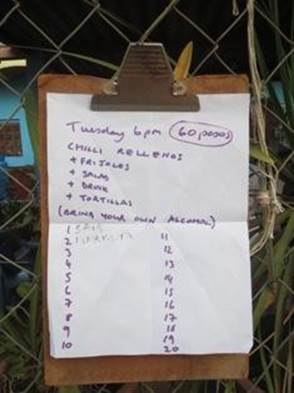 Tuesday 6pm 60 pesos
CHILLI RELLENOS
+ FRIJOLES
+ SALAD
+ DRINK
+ TORTILLAS
(BRING YOUR OWN ALCOHOL)
1
2
3
4
5
6
7
8
9
10
11
12
13
14
15
16
17
18
19
20